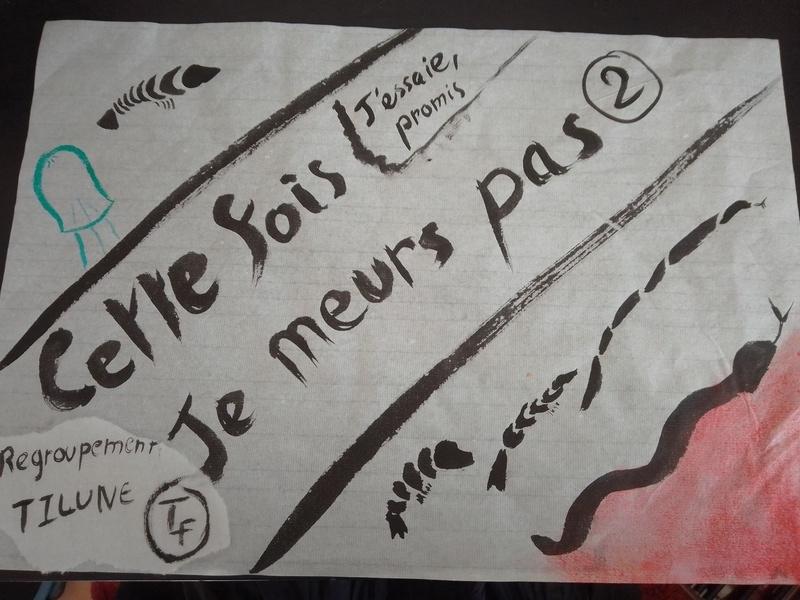 Cette fois
J'essaie,
promis
Je meurs pas 2
Regroupement
TILUNE
Tf